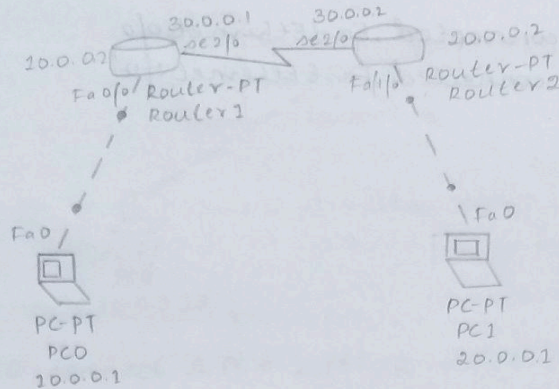 30.0.0.1
30.0.0.2
10.0.0.2
se2/0
se2/0
20.0.0.2
Fa0/0
Router-PT
Router1
Fa1/0
Router-PT
Router2
Fa0
Fa0
PC-PT
PC0
10.0.0.1
PC-PT
PC1
20.0.0.1